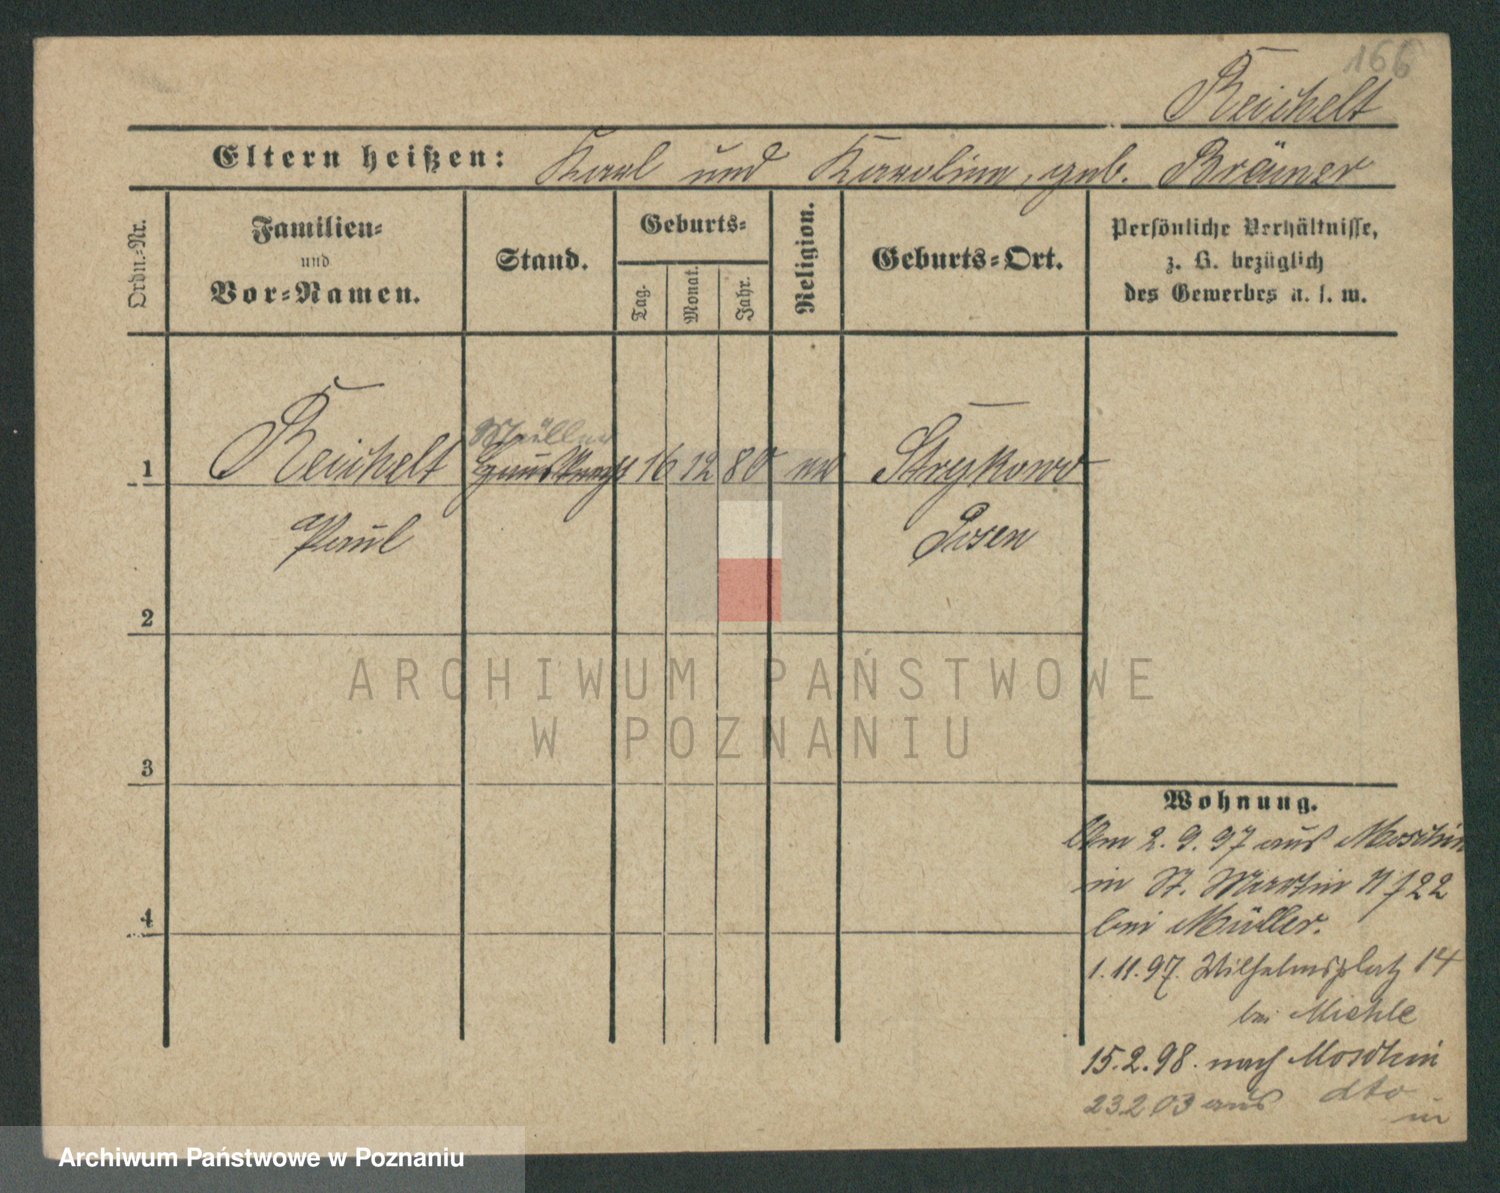 166
Reichelt
Eltern heißen: Karl und Karoline, geb. Brämer
Ordn.-Nr.
Familien-
und
Vor-Namen.
Stand.
Geburts-
Tag.
Monat.
Jahr.
Religion.
Geburts-Ort.
Persönliche Verhältnisse,
z. B. bezüglich
des Gewerbes u. s. w.
Müller
1 Reichelt 16 12 80 ev Strykowo
Paul Posen
2
3
4
ARCHIWUM PAŃSTWOWE
W POZNANIU
Wohnung.
Am 2.9.97 aus Moschin
in St. Martin N 22
bei Müller.
1.11.97. Wilhelmsplatz 14
bei Miehle
15.2.98. nach Moschin
23203 aus dto
in
Archiwum Państwowe w Poznaniu